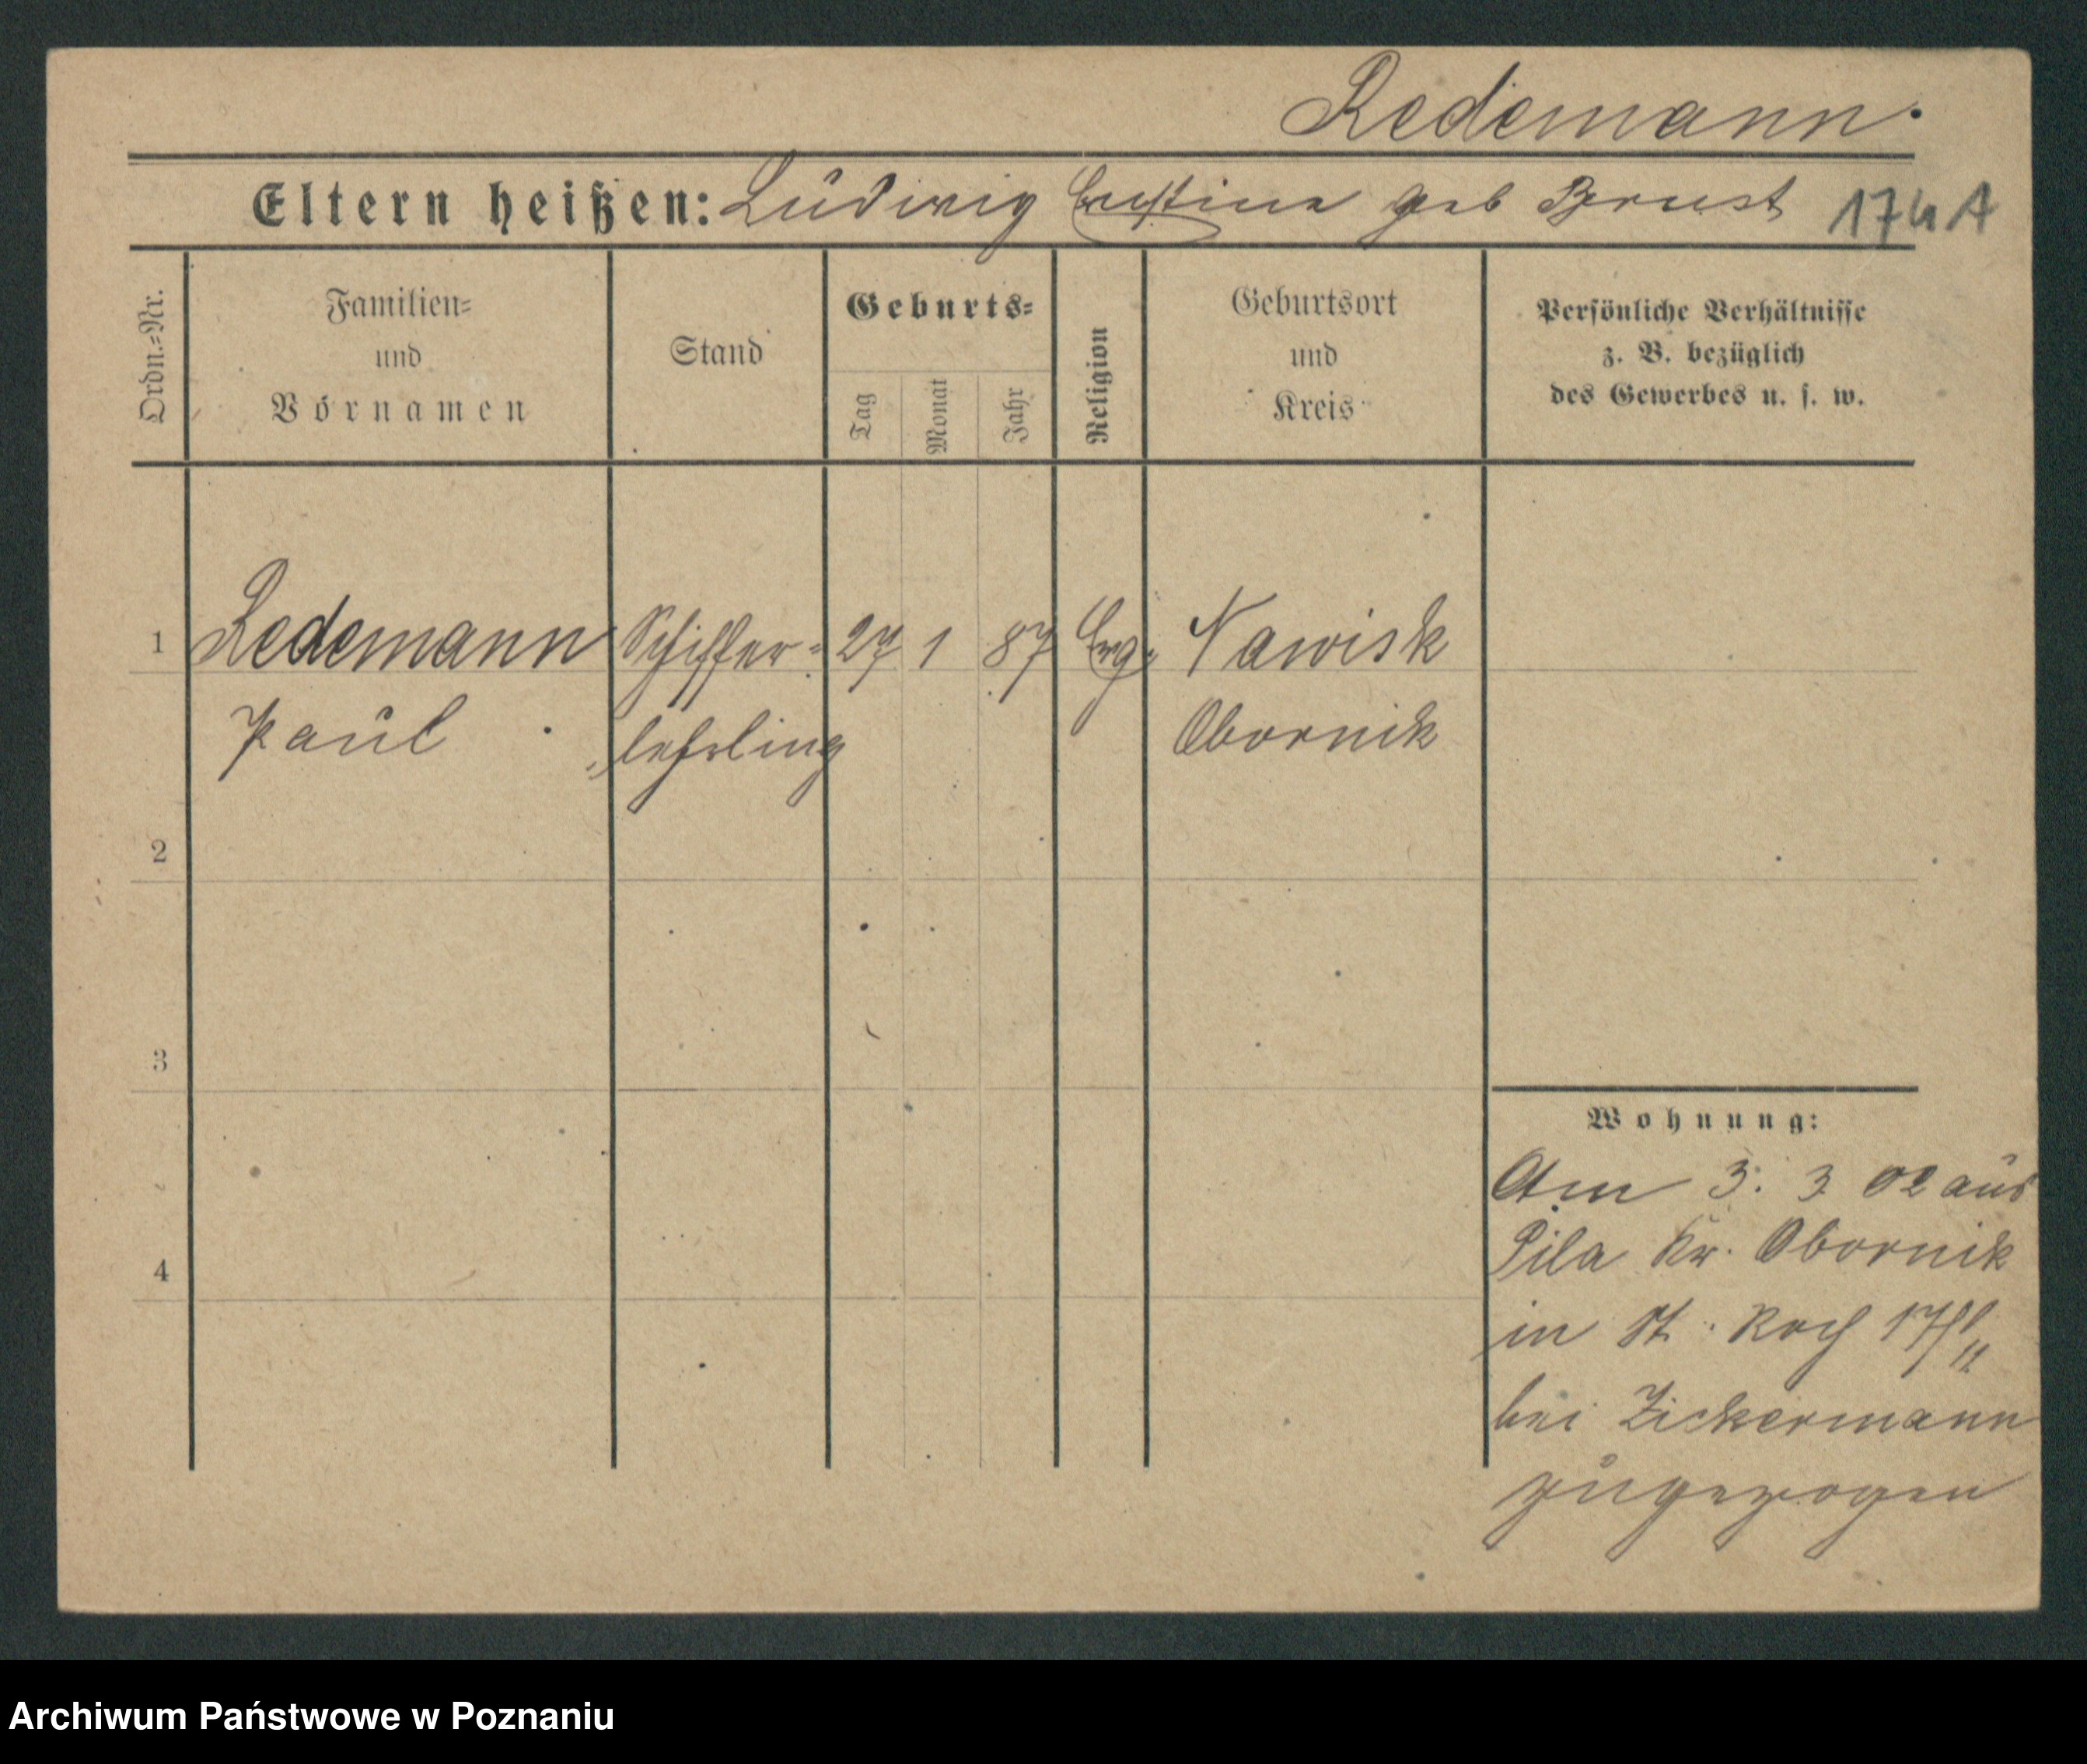 Redemann.
Eltern heißen: Ludwig Ernstine geb Brust 174 A
Ordn.=Nr.
Familien=
und
Vornamen
Stand
Geburts=
Tag
Monat
Jahr
Religion
Geburtsort
und
Kreis
Persönliche Verhältnisse
z. B. bezüglich
des Gewerbes u. s. w.
1 Redemann Schiffer= 27 1 87 Evg. Nawisk
Paul lehrling Obornik
2
3
4
Wohnung:
Am 3. 3 02 aus
Pila Kr. Obornik
in St. Roch 17/11
bei Zickermann
zugezogen
Archiwum Państwowe w Poznaniu